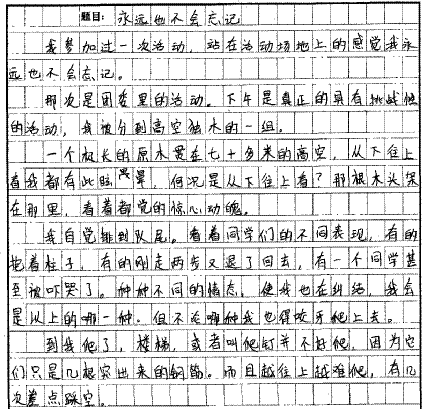 题目：永远也不会忘记
我参加过一次活动，站在活动场地上的感觉我永
远也不会忘记。
那次是团委里的活动。下午是真正的具有挑战性
的活动，我被分到高空独木的一组。
一个极长的原木是在七十多米的高空，从下往上
看我都有此眩晕，何况是从下往上看？那根木头架
在那里，看着都觉的惊心动魄。
我自觉排到队尾。看着同学们的不同表现，有的
抱着柱子，有的刚走两步又退了回去，有一个同学甚
至被吓哭了。种种不同的情态，使我也在纠结，我会
是以上的哪一种。但不论哪种我也得咬牙爬上去。
到我爬了，楼梯，或者叫爬钉并不好爬，因为它
们只是几根突出来的钢筋。而且越往上越难爬，有几
次差点踩空。